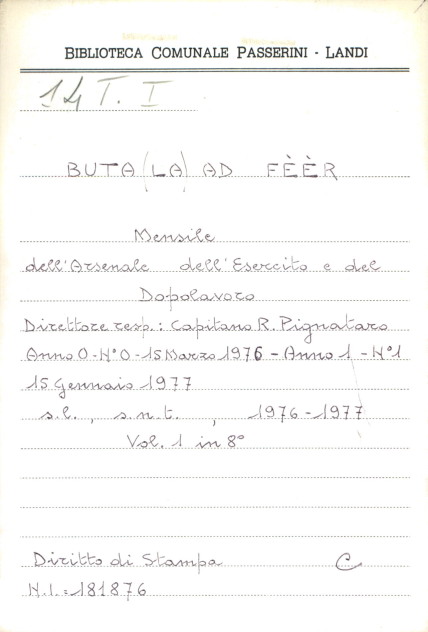 BIBLIOTECA COMUNALE PASSERINI - LANDI
14 T. I
BUTA (LA) AD FÈÈR
Mensile
dell'Arsenale dell'Esercito e del
Dopolavoro
Direttore resp.: Capitano R. Pignataro
Anno 0 - N° 0 - 15 Marzo 1976 - Anno 1 - N° 1
15 Gennaio 1977
s.l., s.n.t., 1976-1977
Vol. 1 in 8°
Diritto di Stampa C
N.I.=181876